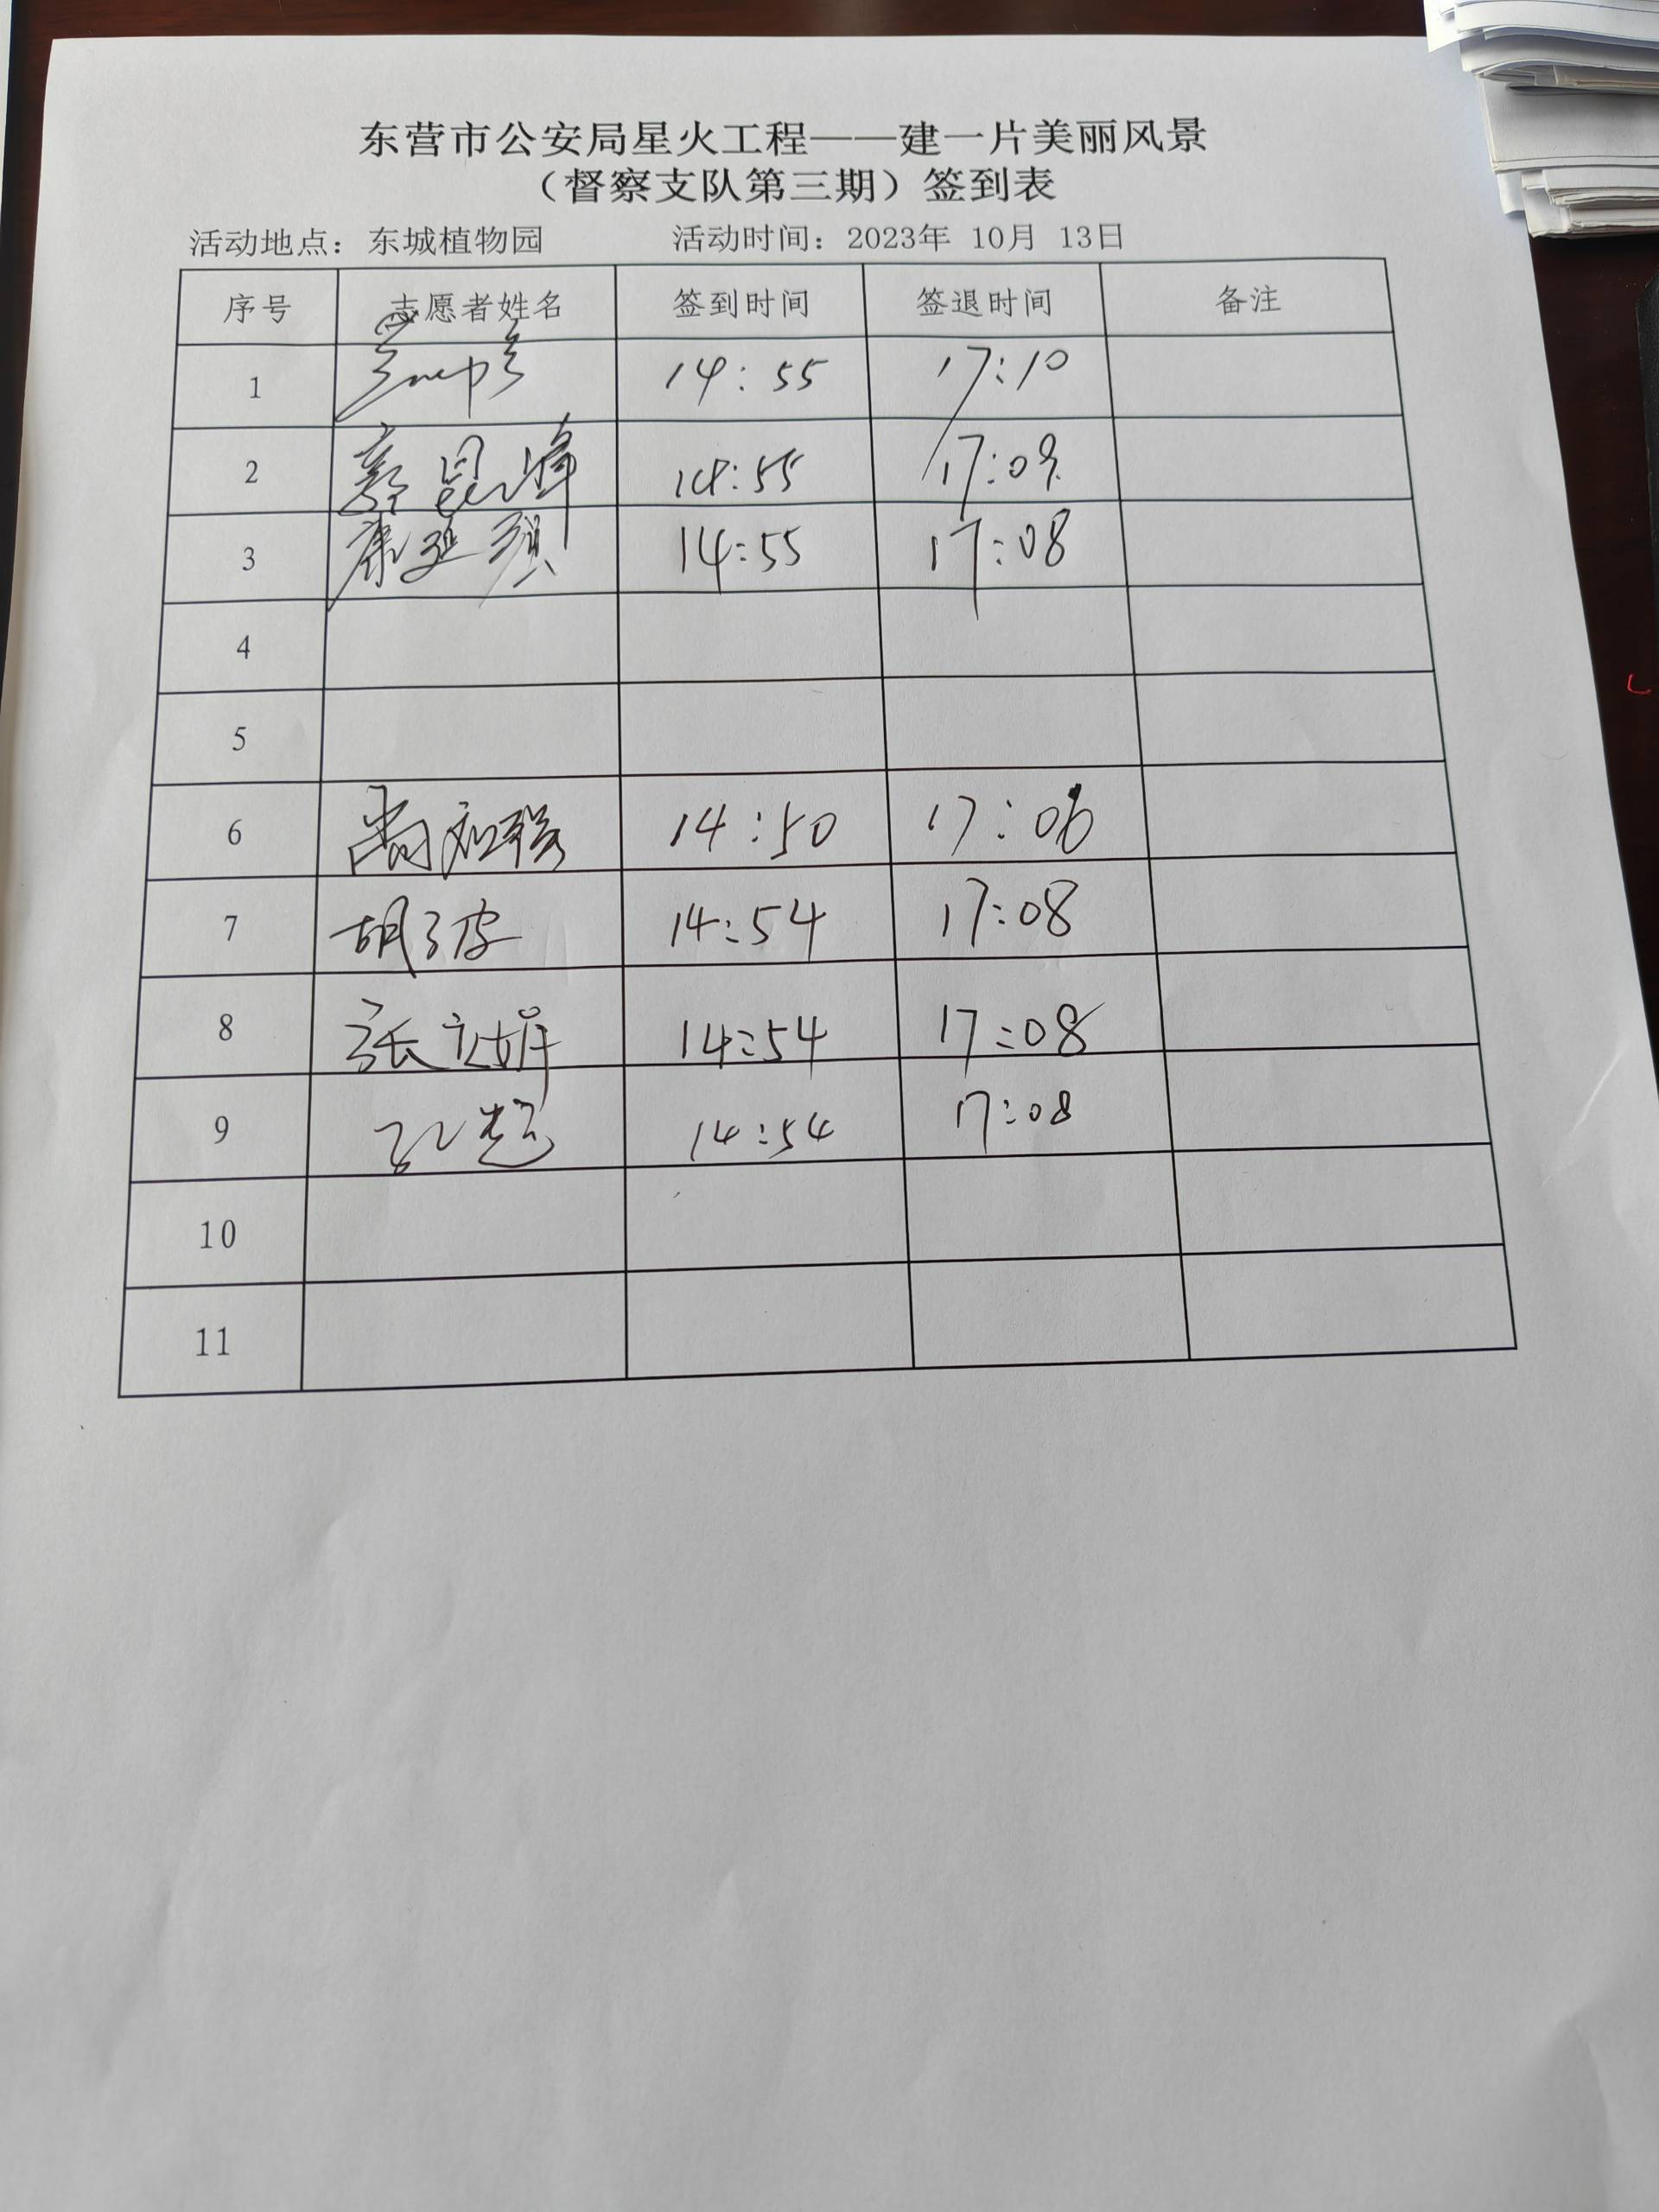 东营市公安局星火工程——建一片美丽风景
（督察支队第三期）签到表
活动地点：东城植物园 活动时间：2023年 10月 13日
序号 志愿者姓名 签到时间 签退时间 备注
1 14:55 17:10
2 郭昆峰 14:55 17:09
3 康延 14:55 17:08
4
5
6 尚 强 14:50 17:06
7 胡 14:54 17:08
8 张文娟 14:54 17:08
9 孙超 14:54 17:08
10
11